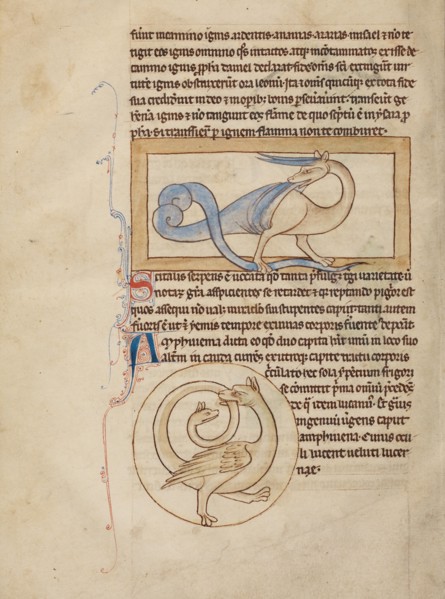 sunt in camino ignis ardentis ananias azarias misael & no te
tigit eos ignis omnino intactos atq; incontaminatos exisse de
camino ignis ppha daniel declarat fide oms sci uir
tute ignis obstruxerunt ora leonu. Ita & omis quicuq; ex tota fide
sua crediderit in deo & in opib; bonis pseuauerit. transient ge
henna ignis & no tangunt eos flamme de quo sciptu e in ysaia p
pha. & si transieris p ignem flamma non te comburet.
Scitalis serpens e uocata qd tanta pfulg& tgi uarietate ut
notar gra aspicientes se retardet & q reptando pigor est
quos assequi no ual& miraclo sui stupentes capit tanti autem
feruoris e ut & hyemis tempore exuuias corporis feruentis deponat.
Amphiuena dicta eo qd duo capita habeat unu in loco suo
Alteru in cauda currens ex utroq; capite tractu corporis
circulato hec sola serpentium frigori
se committit prima omniu procedens
de q idem lucanus. Et grauis
in geminu uergens caput
amphiuena. Cuius ocu
li lucent ueluti lucer
nae.